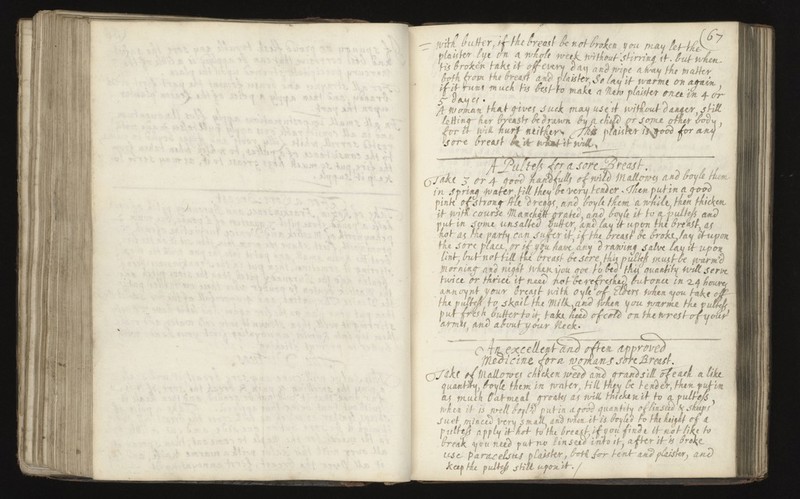 (67
with butter, if the breast be not broken, you may let the
plaister lye on a whole week without stirring it. but when
tis broken take it off every day and wipe away the matter
both from the breast and plaister, So lay it warme on again,
if it runs much tis best to make a New plaister once in 4 or
5 dayes.
A woman that gives suck may use it without danger, still
letting her breasts be drawn by a child or some other body,
for it will hurt neither. This plaister is good for any
sore breast be it what it will.
A Pultess for a sore Breast.
Take 3 or 4 good handfulls of wild Mallows and boyle them
in spring water, till they be very tender. Then put in a good
pinte of strong Ale dreags, and boyle them a while, then thicken
it with course Manchett grated, and boyle it to a pultess and
put in some unsalted Butter, and lay it upon the breast, as
hot as the party can sufer it, if the breast be broke, lay it upon
the sore place, or if you have any drawing salve lay it upon
lint, but not till the breast be sore, this pultess must be warm'd
morning and night when you goe to bed, this quantity will serve
twice or thrice it need not be refreshed but once in 24 houres
annoynt your breast with oyle of Elders when you take off
the pultess to skail the Milk, and when you warme the pultess
put fresh butter to it, take heed of cold on the wrest of your
armes, and about your Neck.
An excellent and often approved
Medicine for a womans sore Breast.
Take of Mallowes chicken weed and grandsill of each a like
quantity, boyle them in water, till they be tender, then put in
as much Oatmeal groates as will thicken it to a pultess,
when it is well boyl'd put in a good quantity of linseed & sheeps
suet minced very small, and when it is boyled to the height of a
pultess apply it hot to the breast, if you finde it not like to
break you need put no linseed into it, after it is broke
use Paracelsus plaister, both for tent and plaister, and
keep the pultess still upon it.